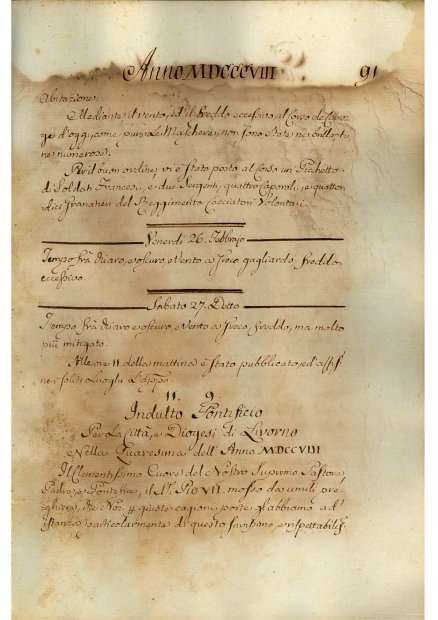 Anno MDCCCVIII 91
Abitazione.
Mediante il vento, ed il freddo eccessivo al Corso de Carroz
ze d'oggi, come pure le Maschere, non sono state ne brillanti
ne numerose.
Per il buon ordine, vi è stato posto al Corso un Picchetto
di Soldati Francesi, e due Sergenti, quattro Caporali, e quattor
dici Granatieri del Reggimento Cacciatori Volontari.
Venerdì 26. Febbrajo
Tempo frà chiaro, e oscuro, e Vento a Greco gagliardo, freddo
eccessivo.
Sabato 27. Detto
Tempo frà chiaro e oscuro, e Vento a Greco, freddo, ma molto
più mitigato.
Alle ore 11. della mattina è stato pubblicato, ed aff.
ne soliti Luoghi L'app.
11. 9.
Indulto Pontificio
Per La Città, e Diogesi di Livorno
e Nella Quaresima dell'Anno MDCCVIII
Il Clementissimo Cuore del Nostro Supremo Pastore,
Padre, e Pontefice, il S. PIO VII. mosso da umili pre
ghiere, che Noi questa cagione porte gl'abbiamo ad
istanza particolarmente di questo savissimo, e rispettabilis.